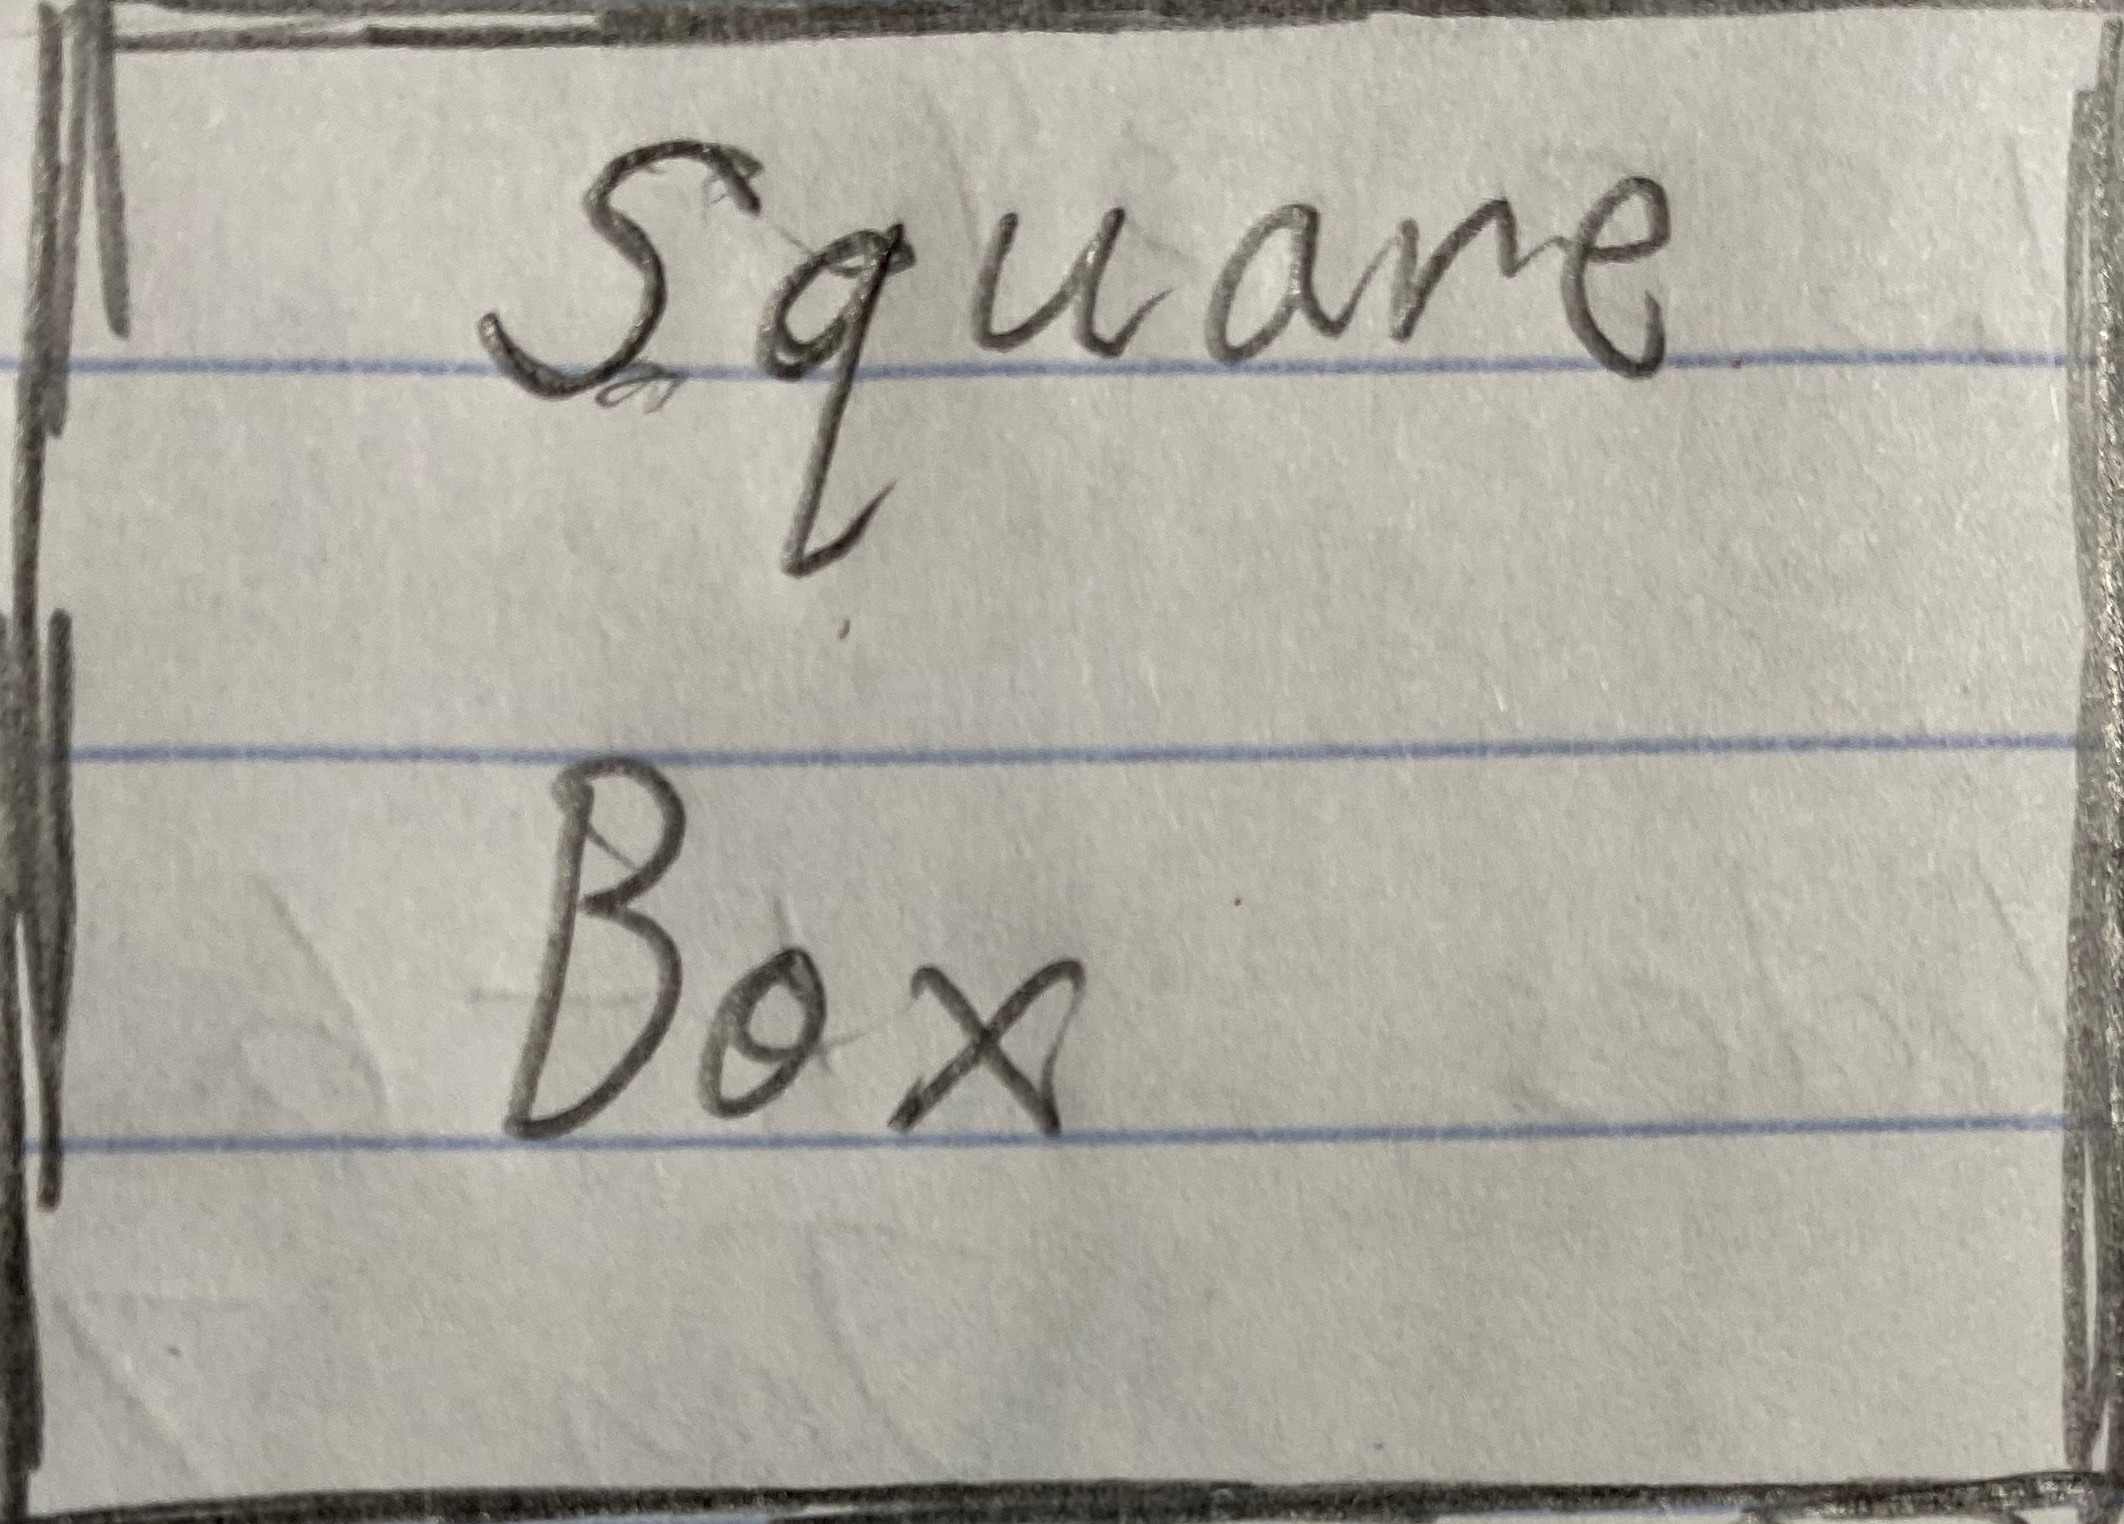 Square
Box